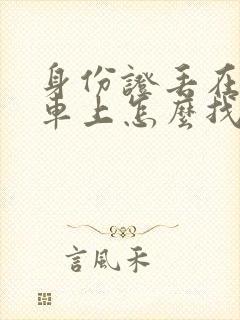 身份證丟在
車上怎麼找
言風禾